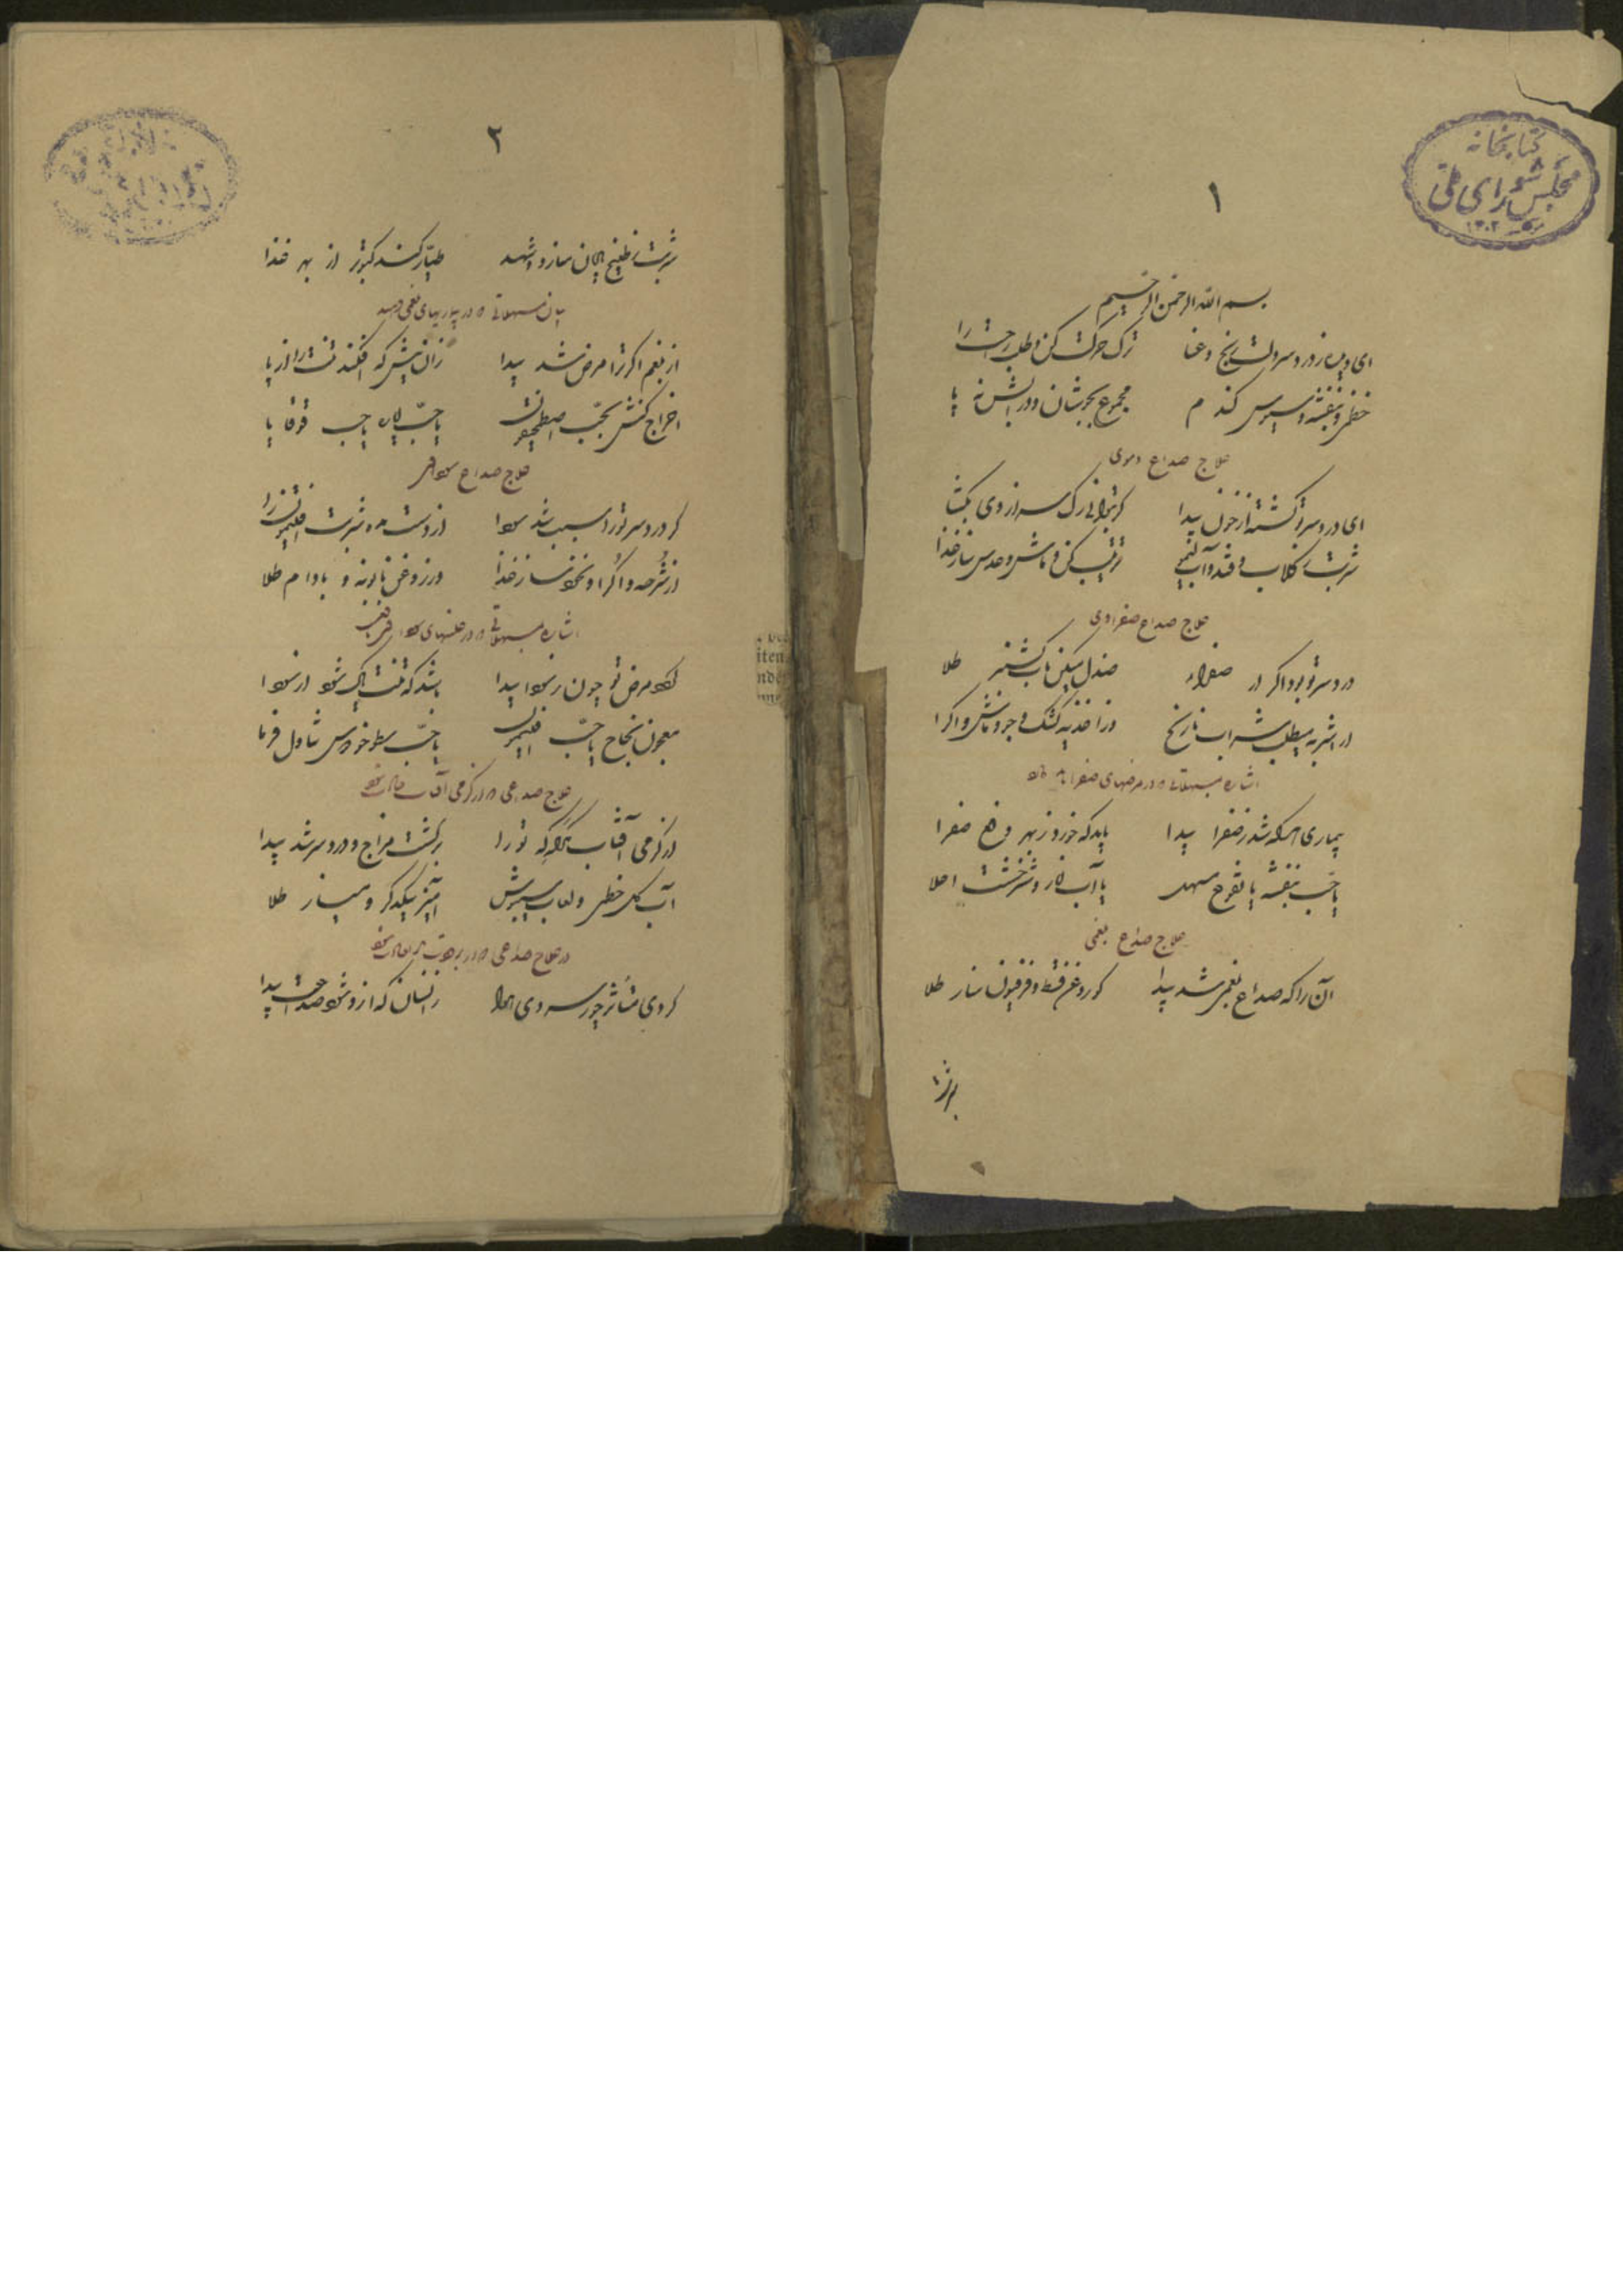 کتابخانه
مجلس شورای ملی
۱۳۰۲
۱
بسم الله الرحمن الرحیم
ای دیده ز درد سر دلت رنج و عنا ترک حرکت کن و طلب راحت را
خطمی و بنفشه و سبوس گندم مجموع بجوشان و در آبش نه پا
علاج صداع دموی
ای درد سر تو گشته از خون پیدا گر بتوانی رگ سر از وی بگشا
شربت ز گلاب و قند و آب لیمو ترتیب کن و ماش و عدس ساز غذا
علاج صداع صفراوی
درد سر تو بود اگر از صفراء صندل میکن بآب گشنیز طلا
از اشربه میطلب شراب نارنج وز اغذیه کشک جو و ماش و اگرا
اشاره بمسهلاتی که در مرضهای صفرا به
بیماری هر که شد ز صفرا پیدا باید که خورد ز بهر دفع صفرا
یا حب بنفشه یا نقوع مسهل یا آب انار و شیرخشت اعلا
علاج صداع بلغمی
آن را که صداع بلغمی شد پیدا گو روغن قسط و فرفیون ساز طلا
۲
شربت ز طبیخ بادیان سازد و شهد طیار کند کبوتر از بهر غذا
بیان مسهلاتی که در بیماریهای بلغمی دهند
از بلغم اگر ترا مرض شد پیدا زان پیش که افکند تنت را از پا
اخراج کنش بحب اصطمخیقون یا حب ایاره یا حب قوقایا
علاج صداع سوداوی
گر درد سر تو را سبب شد سودا از دست مده شربت افتیمون را
از قرصه و اگرا و نخود ساز غذا وز روغن بابونه و بادام طلا
اشاره بمسهلاتی که در علتهای سوداوی
گردد مرض تو چون ز سودا پیدا باشد که تنت پاک شود از سودا
معجون نجاح یا حب افتیمون یا حب سطوخودوس تناول فرما
علاج صداعی که از گرمی آفتاب حادث شود
از گرمی آفتاب هر گه که تو را برگشت مزاج و درد سر شد پیدا
آب گل خطمی و لعاب سبوش آمیز بیکدگر و میساز طلا
در علاج صداعی که از برودت هوا حادث شود
گردی متأثر چو ز سردی هوا زانسان که از و شود صداعت پیدا